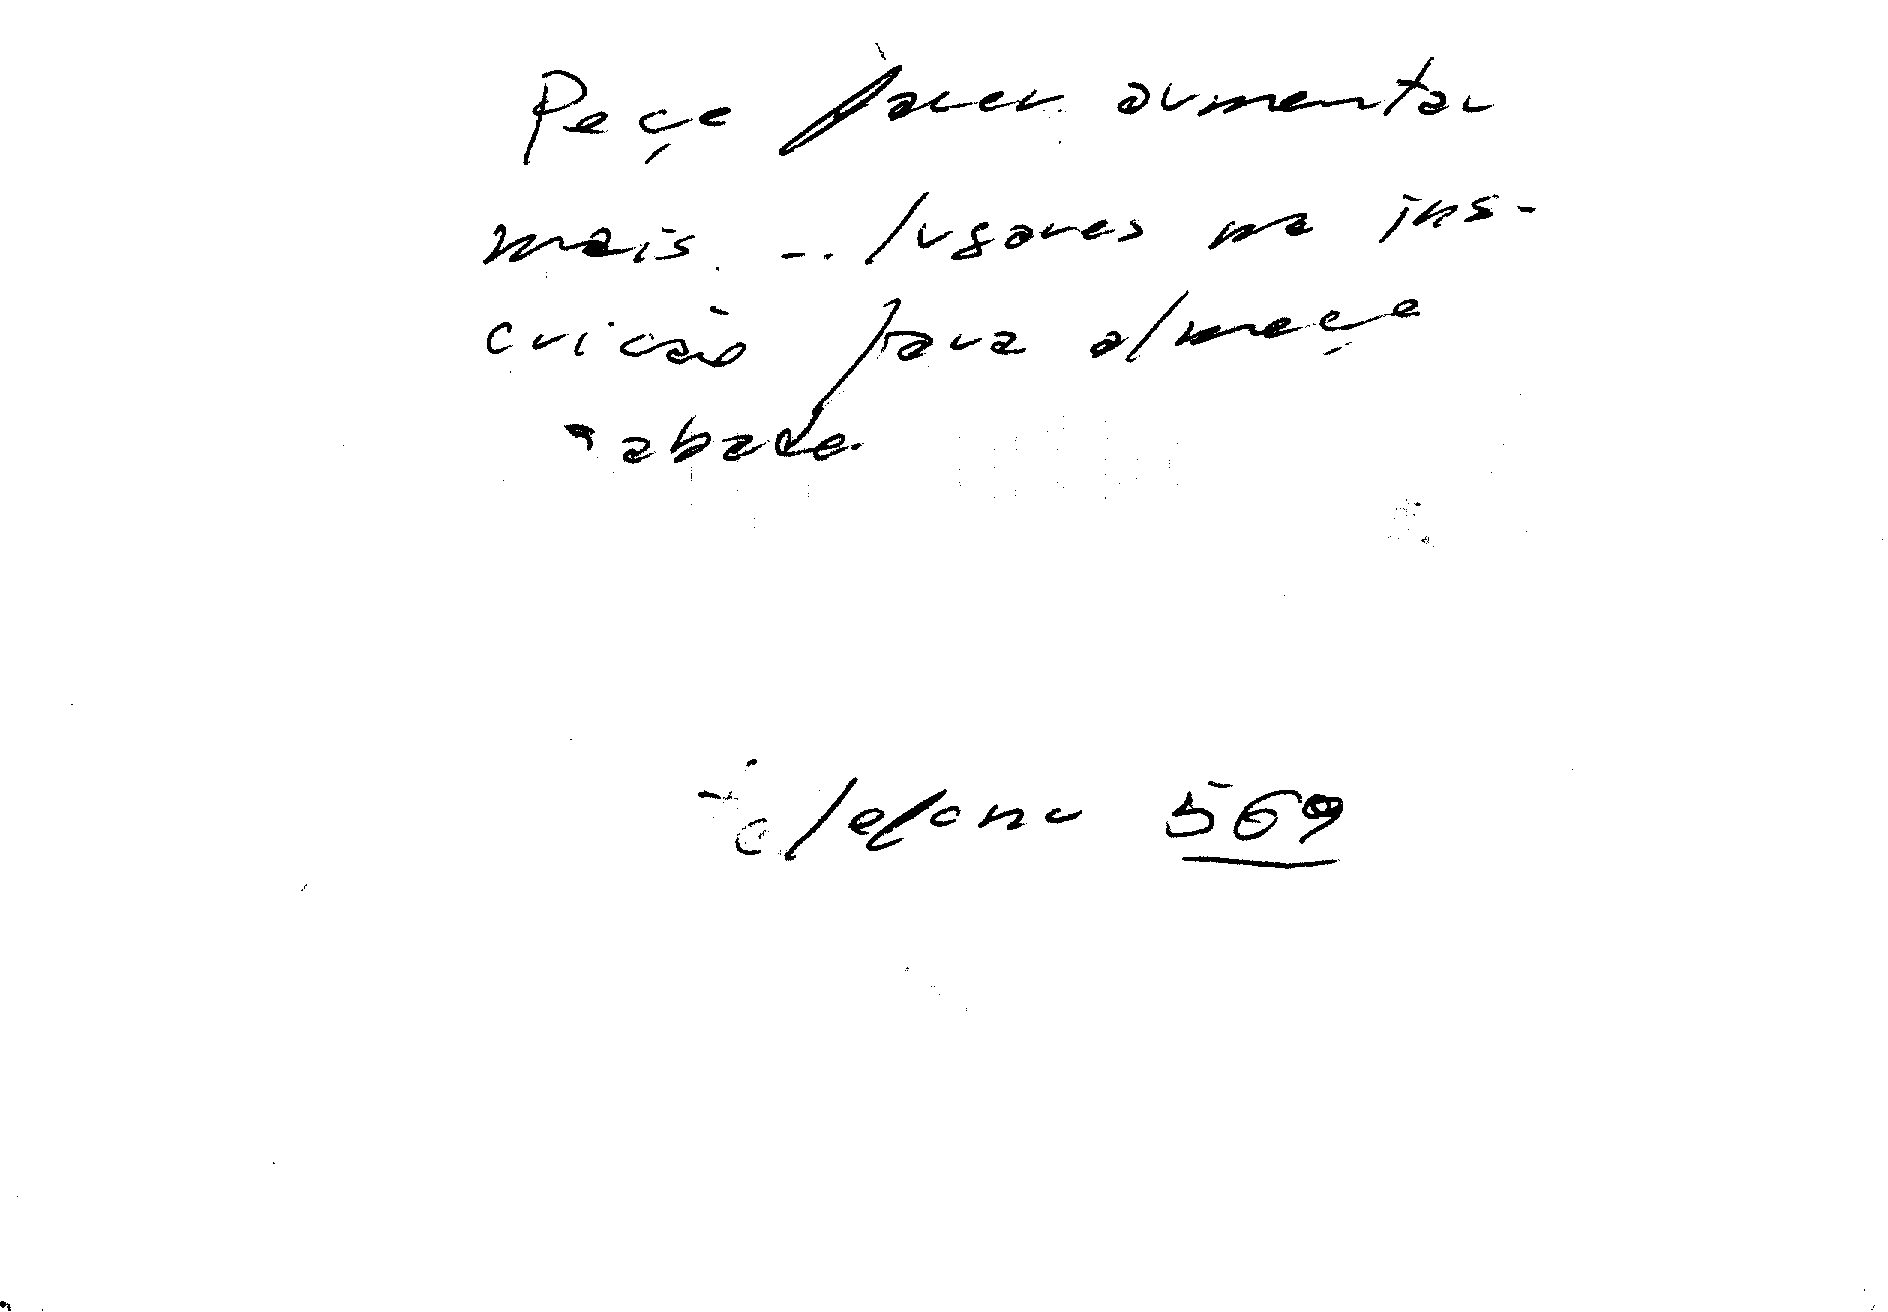 Peço para aumentar
mais ... lugares na ins-
crição para almoço
sabado
telefone 569